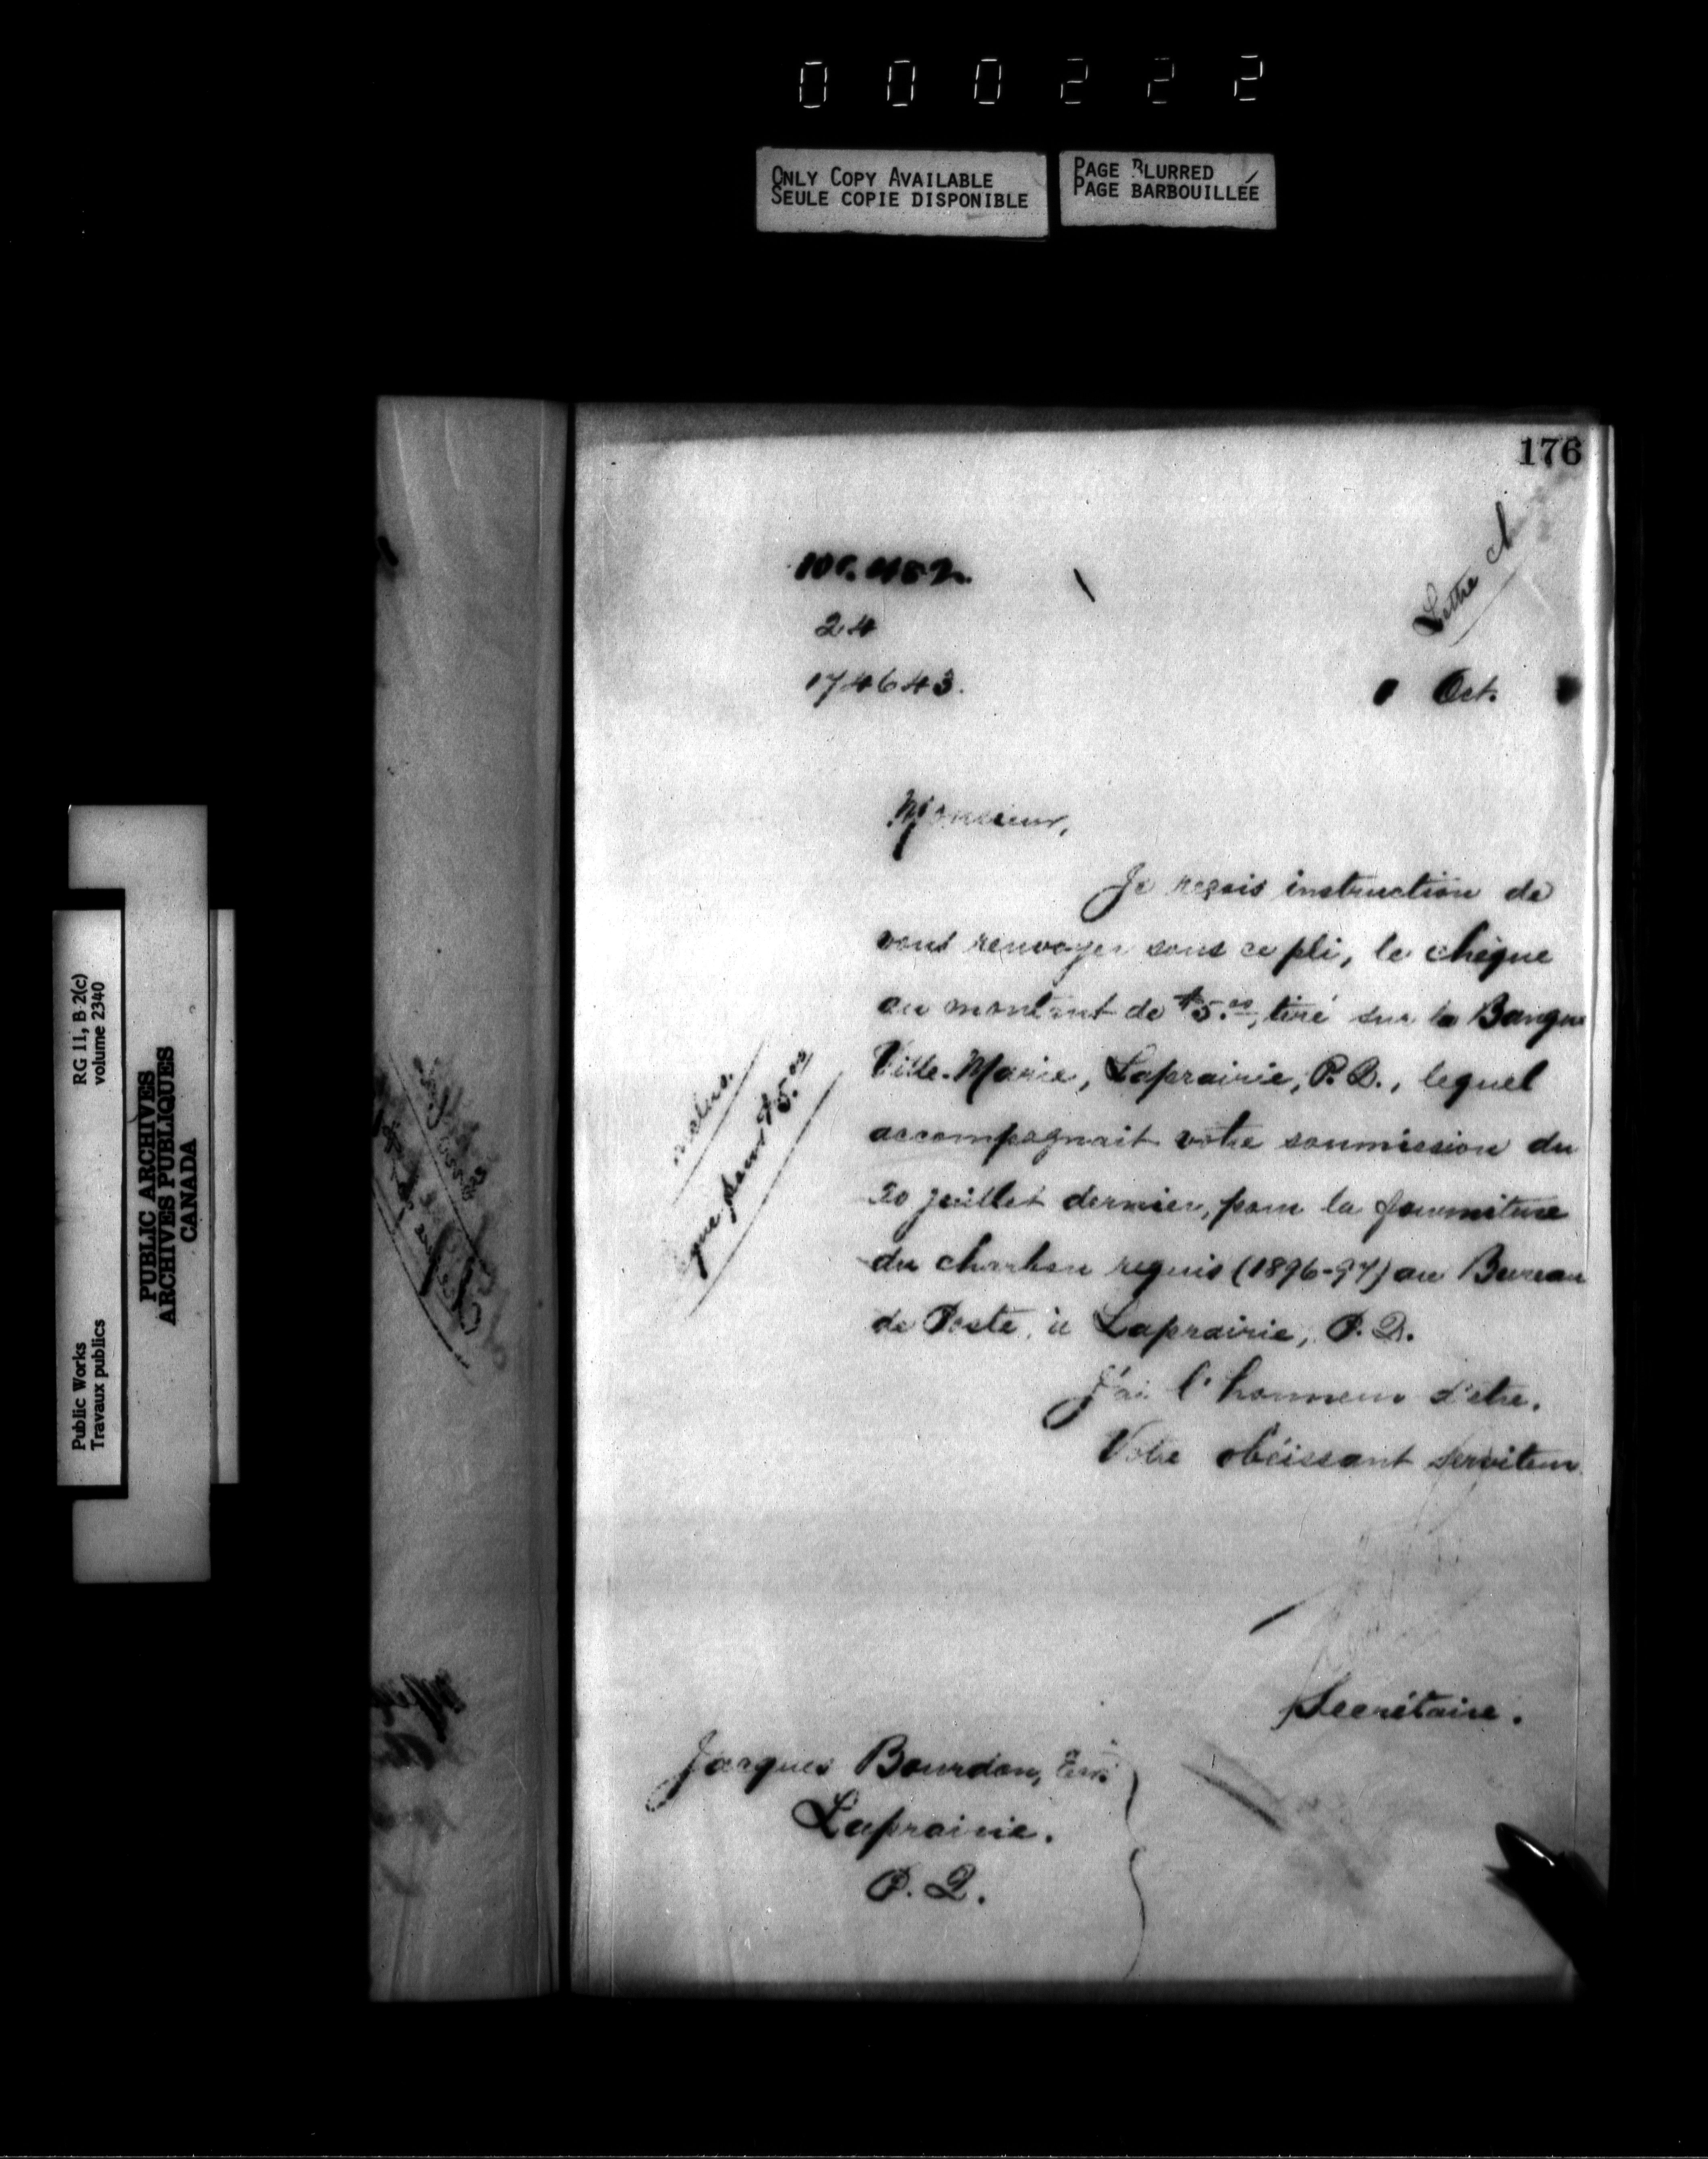 000222
ONLY COPY AVAILABLE
SEULE COPIE DISPONIBLE
PAGE BLURRED
PAGE BARBOUILLÉE
Public Works
Travaux publics
RG 11, B 2(c)
volume 2340
PUBLIC ARCHIVES
ARCHIVES PUBLIQUES
CANADA
176
Lettre
24
174643.
Oct.
Monsieur,
Je reçois instruction de
vous renvoyer sous ce pli, le chèque
au montant de $5.00, tiré sur la Banque
Ville-Marie, Laprairie, P.Q., lequel
accompagnait votre soumission du
20 juillet dernier, pour la fourniture
du charbon requis (1896-97) au Bureau
de Poste, à Laprairie, P.Q.
J'ai l'honneur d'etre.
Votre obéissant serviteur
que pour $5.00
Secrétaire.
Jacques Bourdon,
Laprairie.
P.Q.